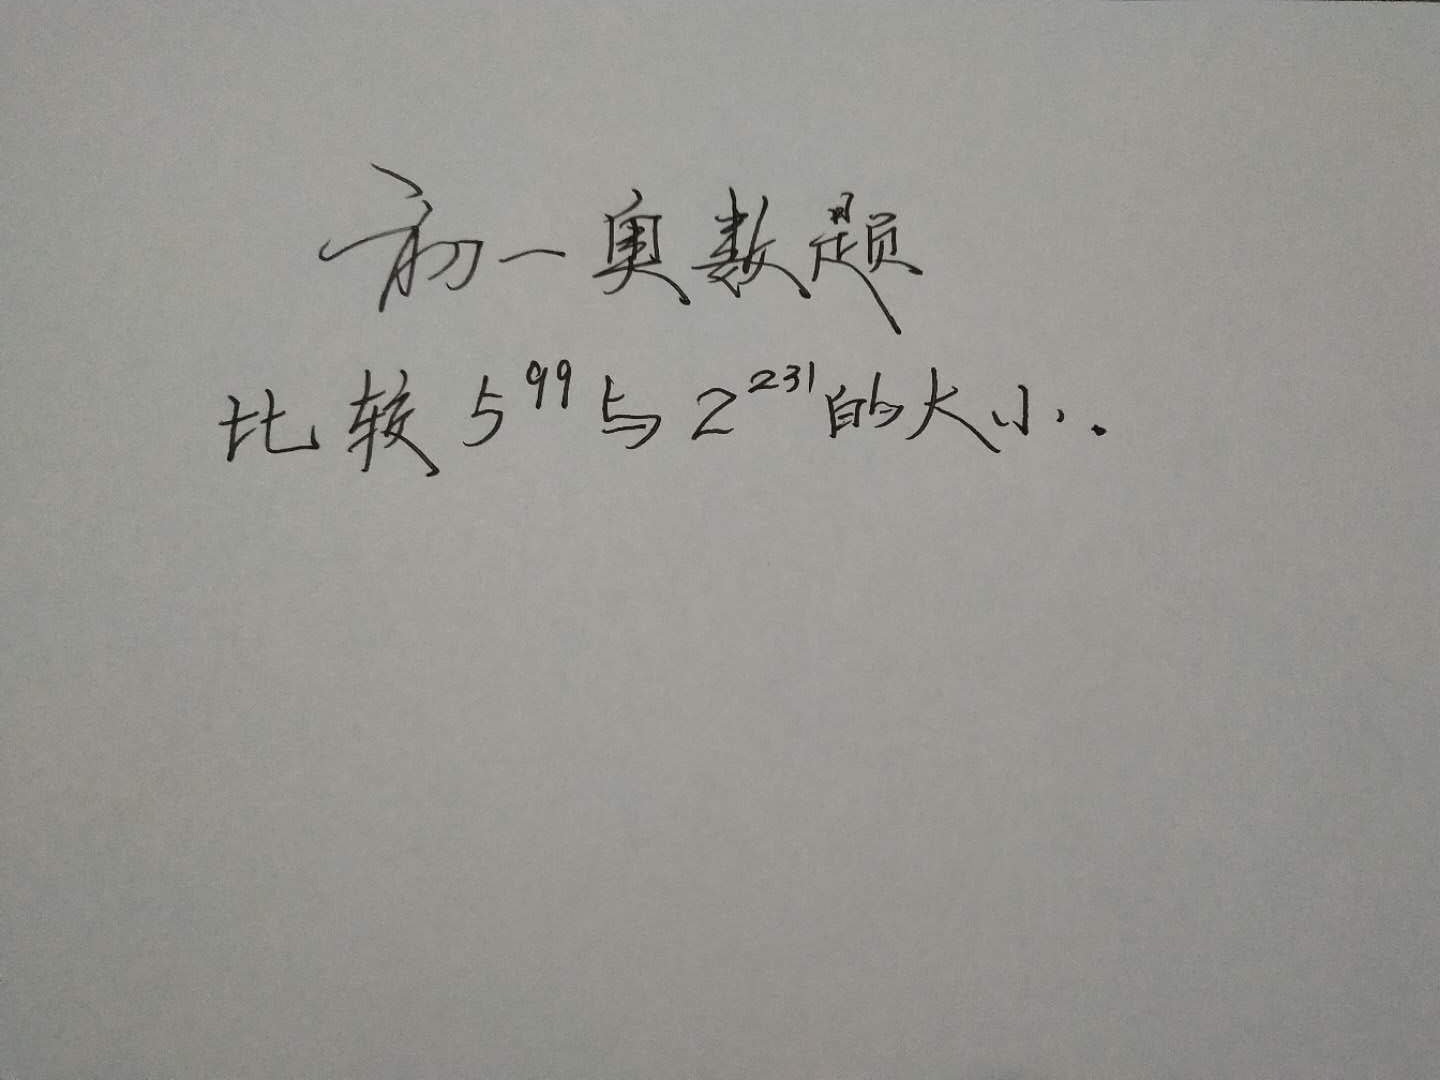 初一奥数题
比较 5⁹⁹与 2²³¹的大小.